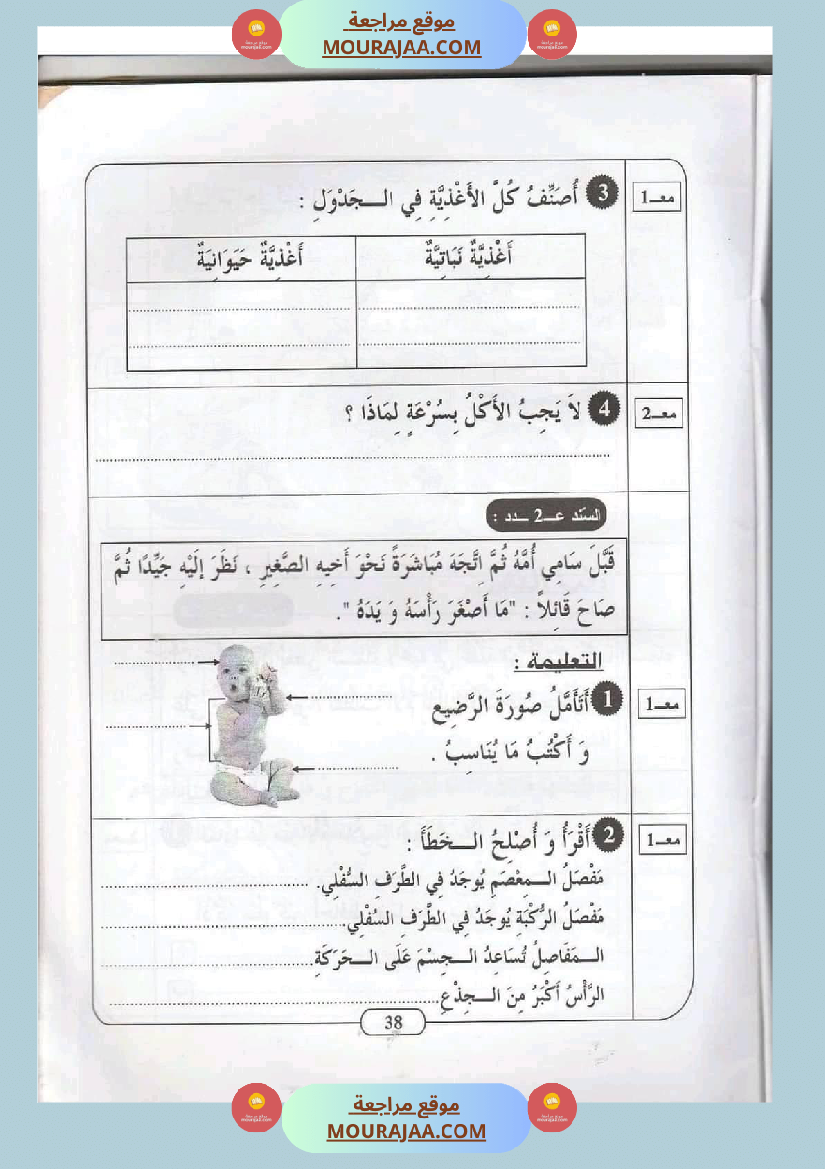 موقع مراجعة
MOURAJAA.COM
معـ1
3 أُصَنِّفُ كُلَّ الأَغْذِيَّةِ فِي الـجَدْوَلِ :
أَغْذِيَّةٌ نَبَاتِيَّةٌ
أَغْذِيَّةٌ حَيَوَانِيَةٌ
معـ2
4 لاَ يَجِبُ الأَكْلُ بِسُرْعَةٍ لِمَاذَا ؟
السّند عـ2ـدد :
قَبَّلَ سَامِي أُمَّهُ ثُمَّ اِتَّجَهَ مُبَاشَرَةً نَحْوَ أَخِيهِ الصَّغِيرِ ، نَظَرَ إِلَيْهِ جَيِّدًا ثُمَّ
صَاحَ قَائِلاً : "مَا أَصْغَرَ رَأْسَهُ وَ يَدَهُ ".
التعليمة :
معـ1
1 أَتَأَمَّلُ صُورَةَ الرَّضِيع
وَ أَكْتُبُ مَا يُنَاسِبُ .
معـ1
2 أَقْرَأُ وَ أُصْلِحُ الـخَطَأَ :
مَفْصَلُ الـمِعْصَمِ يُوجَدُ فِي الطَّرَفِ السُّفْلِي.
مَفْصَلُ الرُّكْبَةِ يُوجَدُ فِي الطَّرَفِ السُفْلِي.
الـمَفَاصِلُ تُسَاعِدُ الـجِسْمَ عَلَى الـحَرَكَةِ.
الرَّأْسُ أَكْبَرُ مِنَ الـجِذْعِ.
38
موقع مراجعة
MOURAJAA.COM